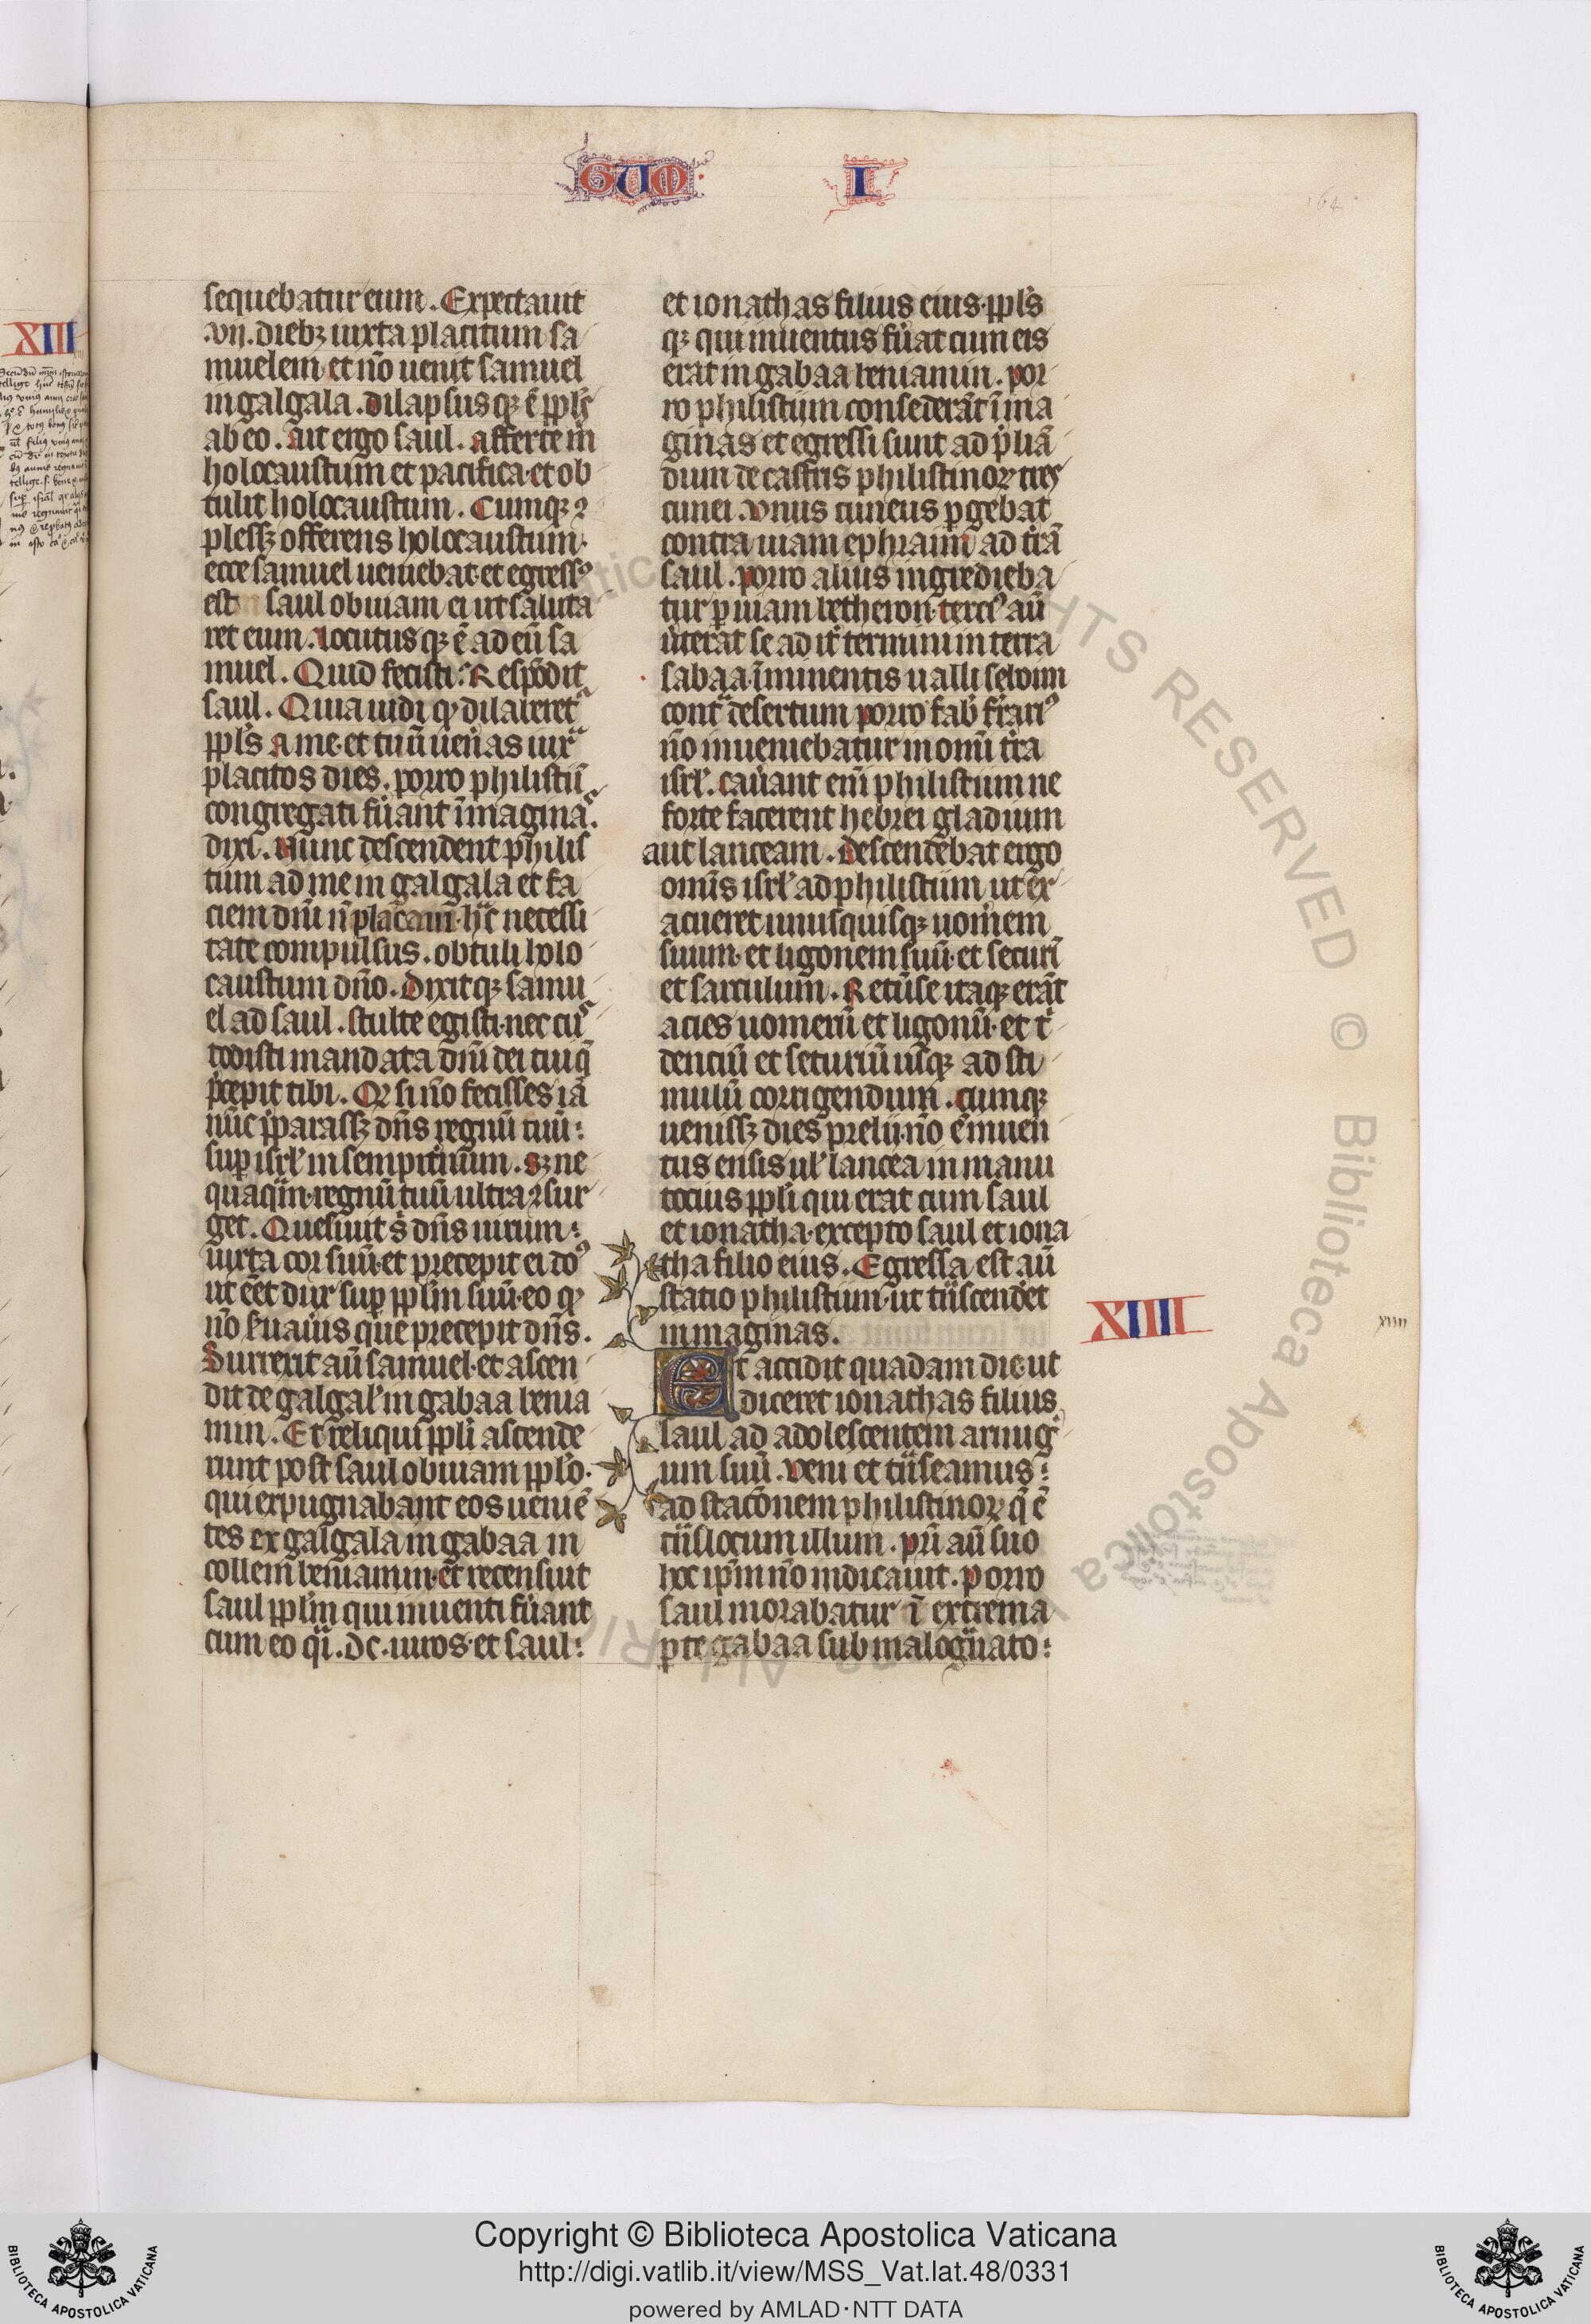 GUM I
164
sequebatur eum. Expectauit
.vij. diebꝫ iuxta placitum sa
muelem et nō uenit samuel
in galgala. dilapsusqꝫ ē ppl's
ab eo. Ait ergo saul. afferte m̄
holocaustum et pacifica. et ob
tulit holocaustum. Cumqꝫ ꝯ
plessꝫ offerens holocaustum.
ecce samuel ueniebat. et egressꝰ
est saul obuiam ei ut saluta
ret eum. locutusqꝫ ē ad eū sa
muel. Quid fecisti? Respōdit
saul. Quia uidi qꝫ dilaberet᷑
ppl's a me. et tu n̄ uen̾as iux̄
placitos dies. porro philistiī
congregati fu̾ant ī maginas.
dixi. Nunc descendent philis
tiim ad me in galgala et fa
ciem dn̄i n̄ placaui. hac necessi
tate compulsus. obtuli holo
caustum dn̄o. Dixitqꝫ samu
el ad saul. stulte egisti. nec cus
todisti mandata dn̄i dei tui q̄
p̄cepit tibi. Qꝫ si nō fecisses iā
nūc p̄parassꝫ dn̄s regnū tuū:
suꝑ isrl' in sempit̾num. sꝫ ne
quaqͣm regnū tuū ultra ꝯsur
get. Quesiuit s̄ dn̄s uirum:
iuxta cor suū. et precepit ei dn̄s
ut eēt dux suꝑ pplm̄ suū. eo qꝫ
nō s̾uau̾is que precepit dn̄s.
Surrexit aū samuel. et ascen
dit de galgal' in gabaa benia
min. Et reliqui ppl'i ascende
runt post saul obuiam ppl'o.
qui expugnabant eos ueniē
tes ex galgala in gabaa in
collem beniamin. et recensiuit
saul pplm̄ qui inuenti fu̾ant
cum eo qͣi. dc. uiros. et saul:
et ionathas filius eius. ppl's
qꝫ qui inuentus fu̾at cum eis
erat in gabaa beniamin. por
ro philistiim consederāt ī ma
ginas et egressi sunt ad p̾dā
dum de castris philistinoꝝ tres
cunei. vnus cuneus ꝑgebat
contra uiam ephraim ad t̾rā
saul. porro alius ingredieba
tur ꝑ uiam betheron. terciꝰ aū
u̾terat se ad it̾ termini in terra
sabaa. īminentis ualli seboim
contͣ desertum porro fab' ferrariꝰ
nō inueniebatur in omī t̾ra
isrl'. cau̾ant enī philistiim ne
forte facerent hebrei gladium
aut lanceam. Descendebat ergo
omīs isrl' ad philistiim ut ex
acueret unusquisqꝫ uomerem
suum. et ligonem suū. et securī
et sarculum. Retūse itaqꝫ erāt
acies uomerū et ligonū. et tͥ
dentiū et securiū usqꝫ ad sti
mulū corrigendum. cumqꝫ
uenissꝫ dies prelij. nō ē inuen
tus ensis ul' lancea in manu
tocius ppl'i qui erat cum saul
et ionatha. excepto saul et iona
tha filio eius. Egressa est aū
statio philistiim. ut tͣnscenderet
in maginas.
XIIII
xiiii
Et accidit quadam die. ut
diceret ionathas filius
saul ad adolescentem armig̾
um suū. veni et tͣnseamus:
ad stacōnem philistinoꝝ q̄ ē
tͣns locum illum. pr̄i aū suo
hoc ip̄m nō indicauit. Porro
saul morabatur ī extrema
ꝑte gabaa sub malogͣnato:
XIII
Copyright © Biblioteca Apostolica Vaticana
http://digi.vatlib.it/view/MSS_Vat.lat.48/0331
powered by AMLAD·NTT DATA
BIBLIOTECA APOSTOLICA VATICANA
BIBLIOTECA APOSTOLICA VATICANA